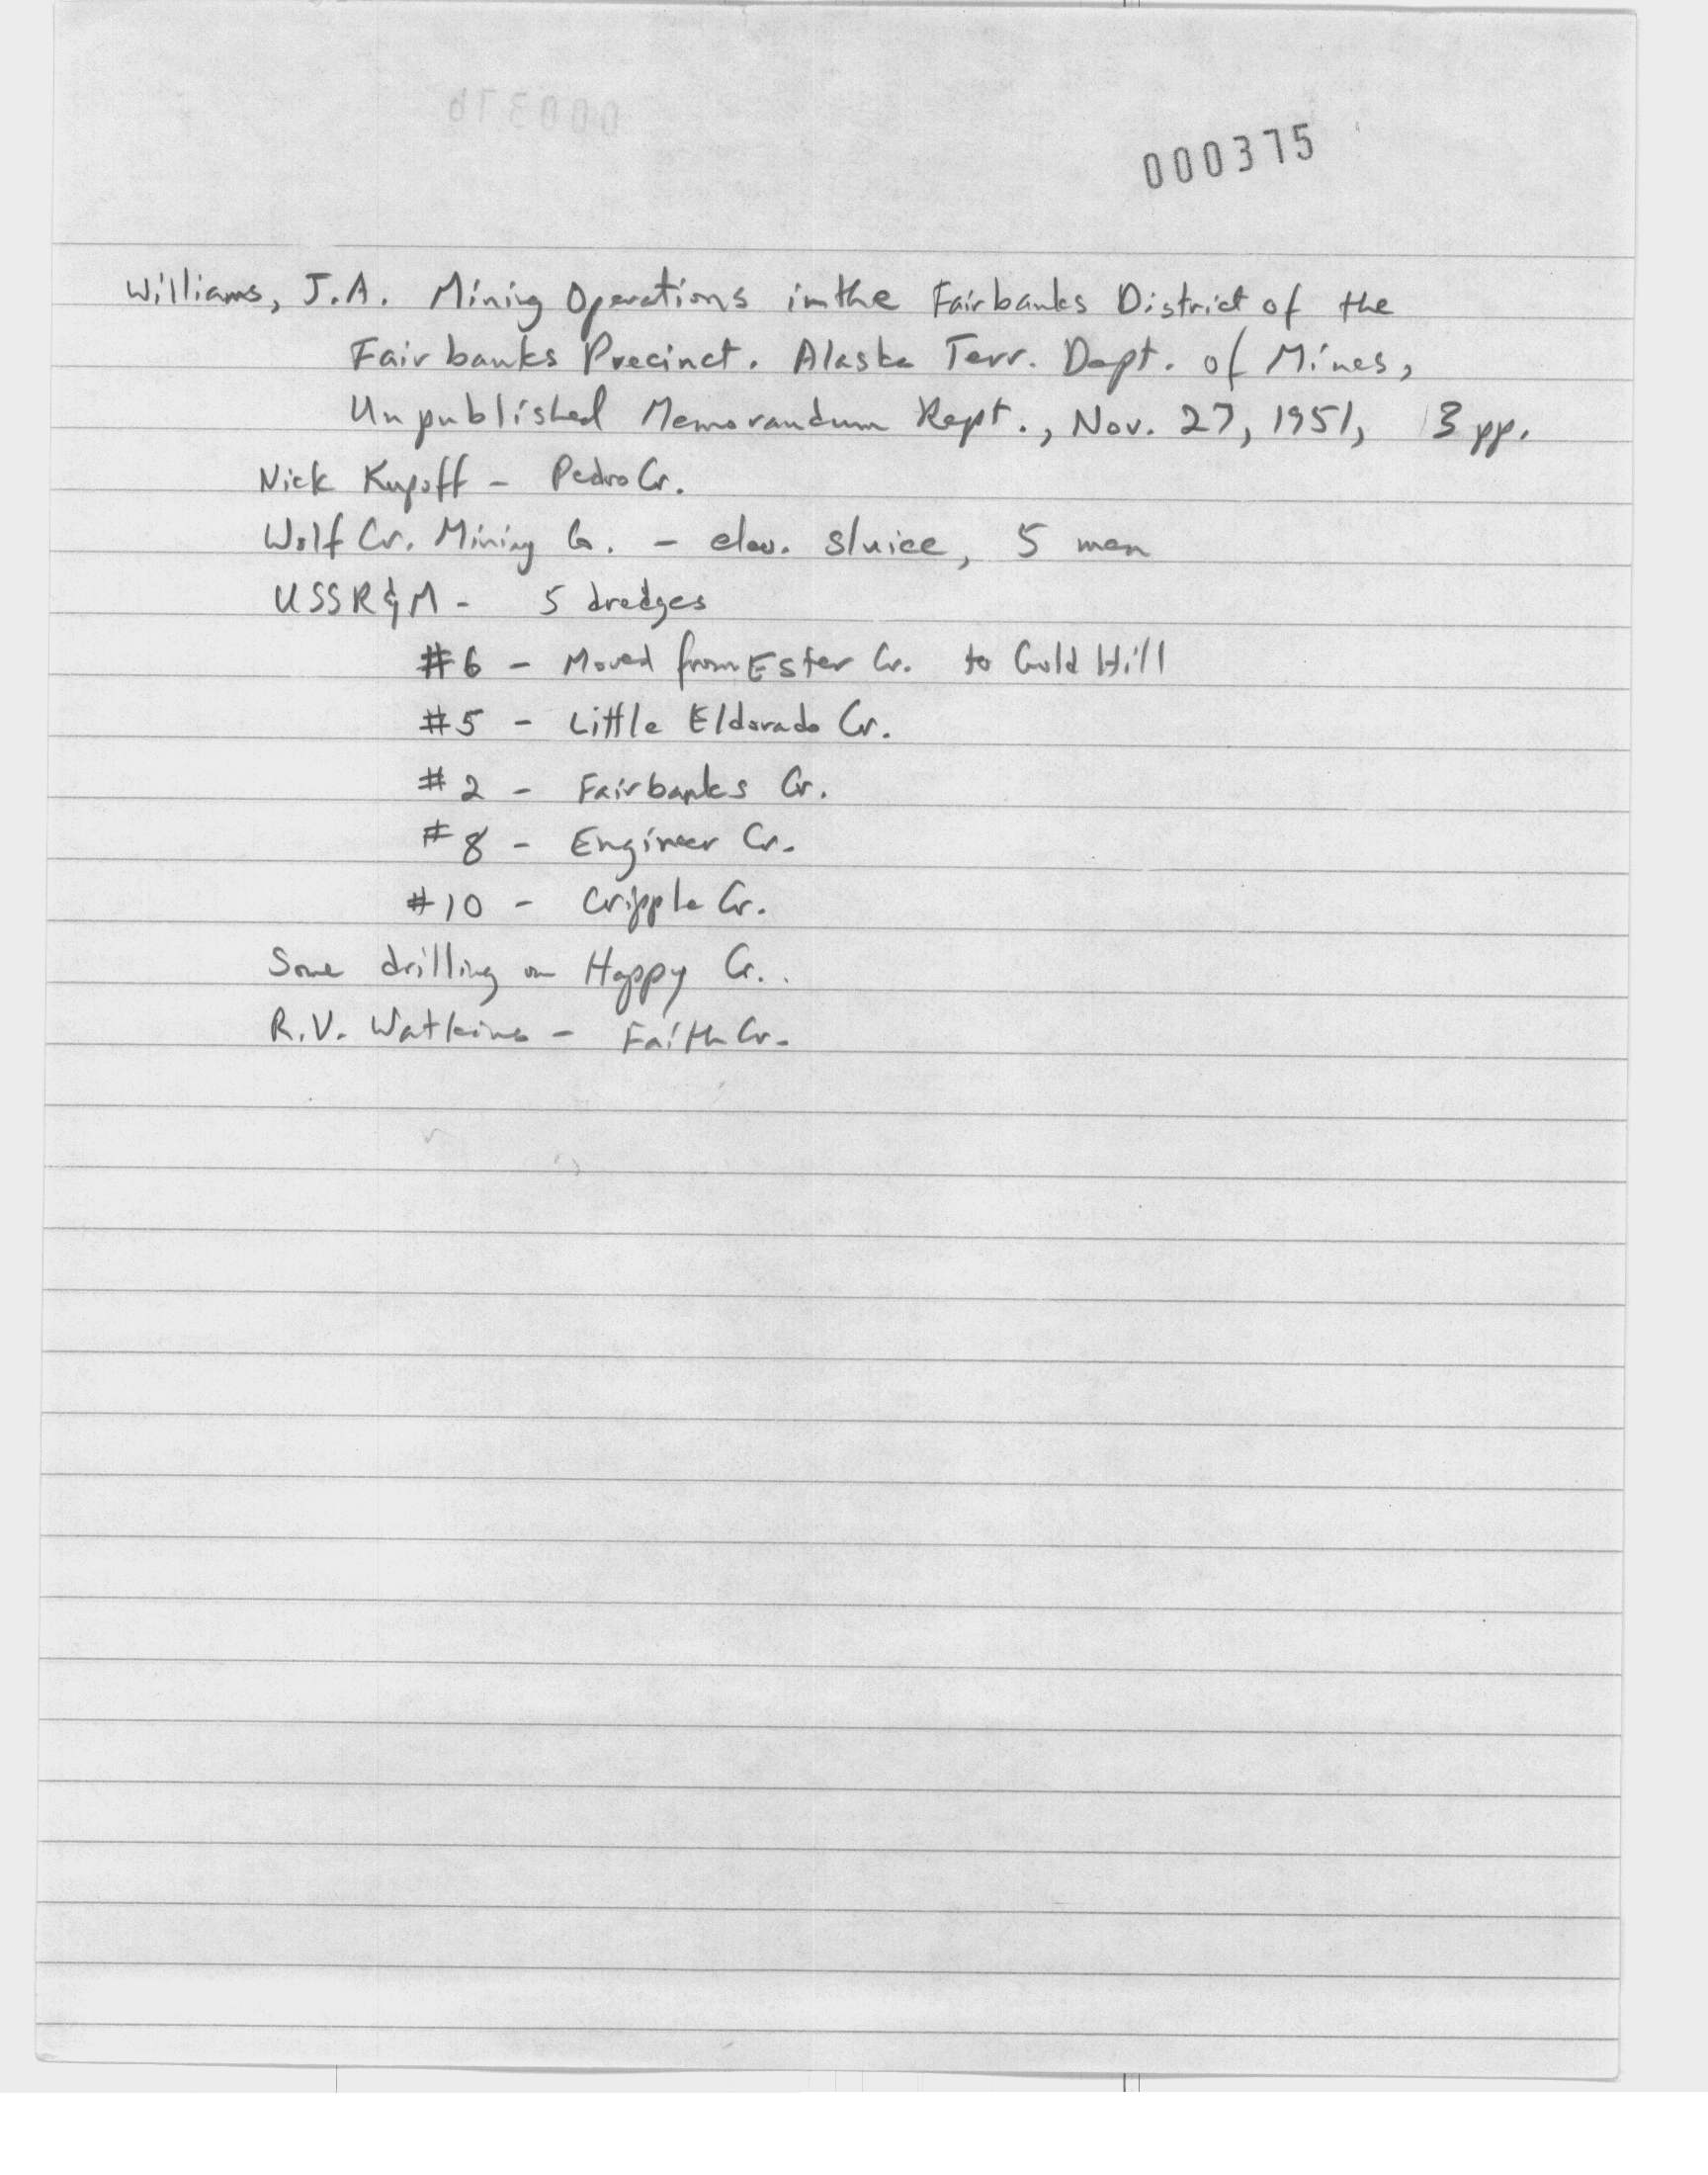 000375
Williams, J.A. Mining Operations in the Fairbanks District of the
Fairbanks Precinct. Alaska Terr. Dept. of Mines,
Unpublished Memorandum Rept., Nov. 27, 1951, 13 pp.
Nick Kupoff - Pedro Cr.
Wolf Cr. Mining Co. - elev. sluice, 5 men
USSR&M - 5 dredges
#6 - Moved from Ester Cr. to Gold Hill
#5 - Little Eldorado Cr.
#2 - Fairbanks Cr.
#8 - Engineer Cr.
#10 - Cripple Cr.
Some drilling on Happy Cr.
R.V. Watkins - Faith Cr.